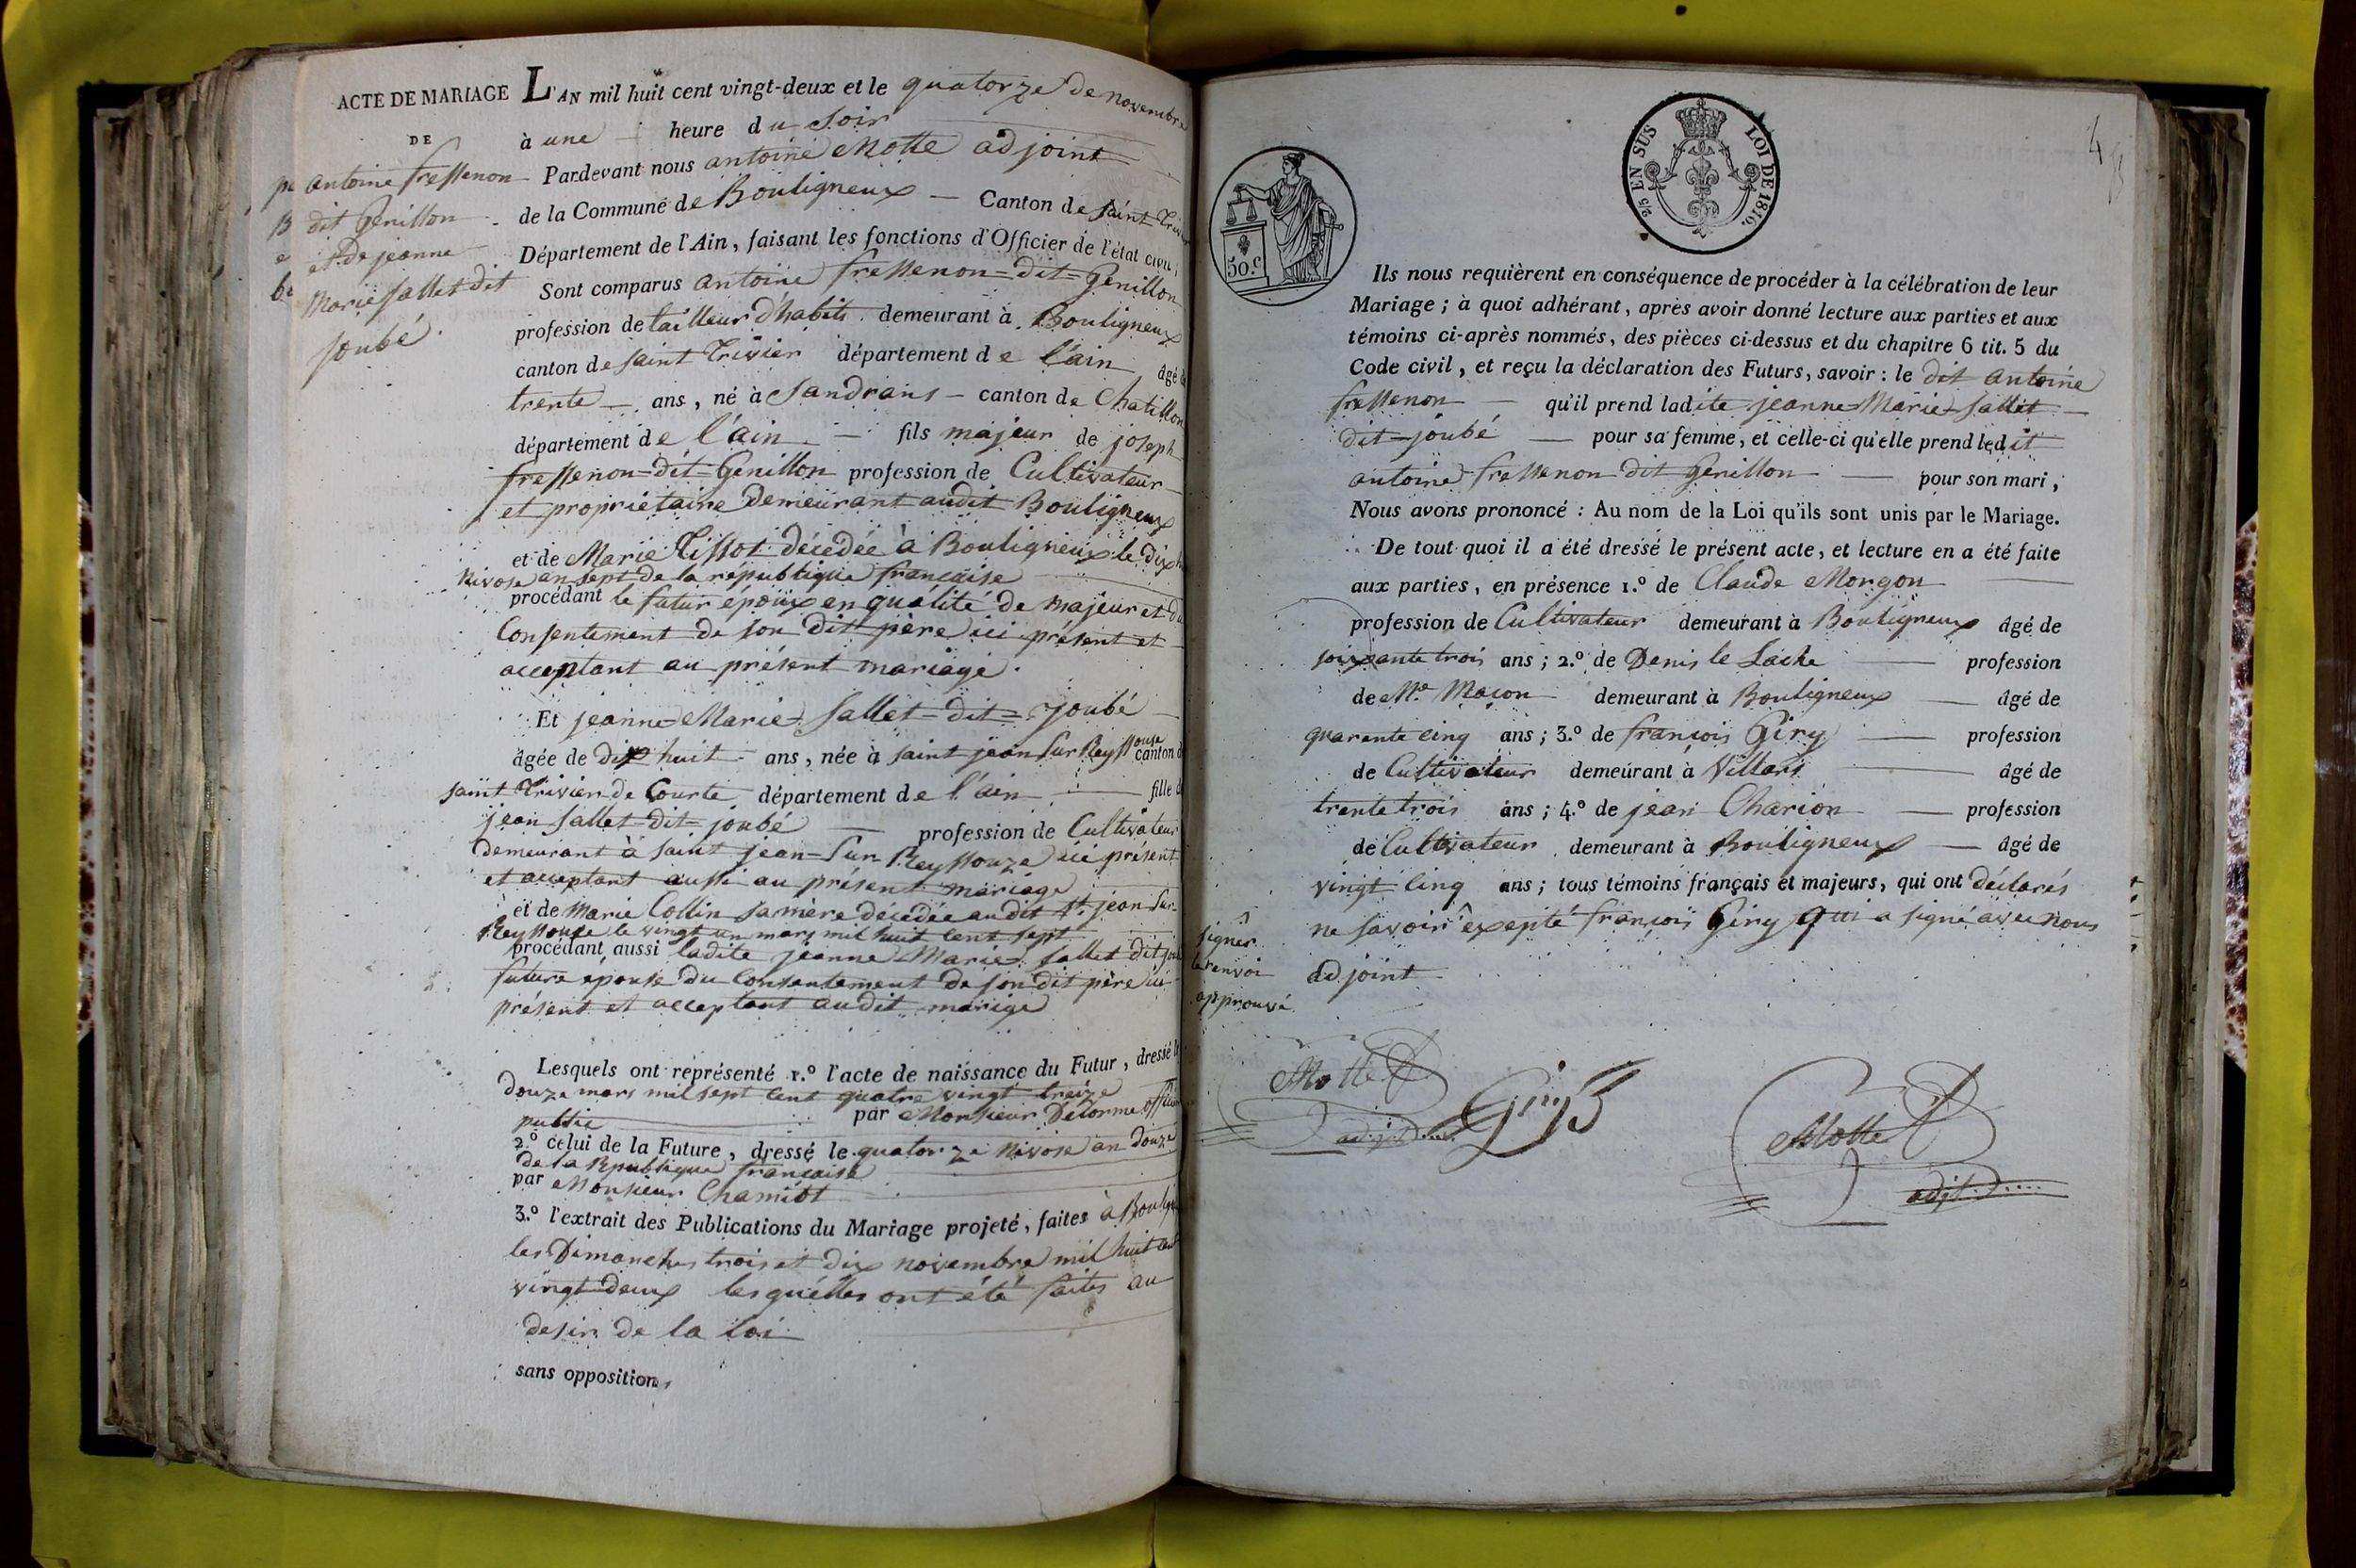 ACTE DE MARIAGE
DE
antoine fressenon
dit Genillon
et de jeanne
Marie sallet dit
joubé
L'AN mil huit cent vingt-deux et le quatorze de novembre
à une heure du soir
Pardevant nous antoine Motte adjoint
de la Commune de Bouligneux — Canton de saint Trivier
Département de l'Ain, faisant les fonctions d'Officier de l'état civil,
Sont comparus antoine fressenon=dit=Genillon
profession de tailleur d'habits demeurant à Bouligneux
canton de saint Trivier département de l'ain âgé de
trente — ans, né à Sandrans — canton de Chatillon
département de l'ain — fils majeur de joseph
fressenon=dit=Genillon profession de Cultivateur
et propriétaire demeurant audit Bouligneux
et de Marie Tissot décédée à Bouligneux le dix
Nivose an sept de la république française
procédant le futur époux en qualité de majeur et du
Consentement de son dit père ici présent et
acceptant au présent mariage.
Et jeanne=Marie=Sallet=dit=joubé
âgée de dix huit ans, née à saint jean sur Reyssouse canton de
saint Trivier de Courte département de l'ain — fille de
jean sallet=dit=joubé — profession de Cultivateur
demeurant à saint jean=sur Reyssouze ici présent
et acceptant aussi au présent mariage
et de Marie Collin sa mère décédée audit St. jean sur
Reyssouse le vingt un mars mil huit cent sept
procédant aussi ladite jeanne Marie sallet dit joubé
future épouse du Consentement de son dit père ici
présent et acceptant audit marige
Lesquels ont représenté 1.º l'acte de naissance du Futur, dressé le
douze mars mil sept cent quatre vingt treize
public par Monsieur Delorme officier
2.º celui de la Future, dressé le quatorze Nivose an douze
de la République française
par Monsieur Chamiot
3.º l'extrait des Publications du Mariage projeté, faites à Bouligneux
les Dimanches trois et dix novembre mil huit cent
vingt deux lesquélles ont été faites au
desir de la loi
sans opposition,
EN SUS
LOI DE 1816.
50.c
Ils nous requièrent en conséquence de procéder à la célébration de leur
Mariage; à quoi adhérant, après avoir donné lecture aux parties et aux
témoins ci-après nommés, des pièces ci-dessus et du chapitre 6 tit. 5 du
Code civil, et reçu la déclaration des Futurs, savoir: le dit antoine
fressenon — qu'il prend ladite jeanne=Marie=sallet
dit=joubé — pour sa femme, et celle-ci qu'elle prend ledit
antoine fressenon dit Genillon — pour son mari,
Nous avons prononcé: Au nom de la Loi qu'ils sont unis par le Mariage.
De tout quoi il a été dressé le présent acte, et lecture en a été faite
aux parties, en présence 1.º de Claude Morgon
profession de Cultivateur demeurant à Bouligneux âgé de
soixante trois ans; 2.º de Denis le Lache — profession
de Me. Maçon demeurant à Bouligneux — âgé de
quarante cinq ans; 3.º de françois Giry — profession
de Cultivateur demeurant à Villars — âgé de
trente trois ans; 4.º de jean Charion — profession
de Cultivateur demeurant à Bouligneux — âgé de
vingt cinq ans; tous témoins français et majeurs, qui ont déclarés
ne savoir excepté françois Giry qui a signé avec nous
adjoint
signer
le renvoi
approuvé
Motte
adjt
Giry
Motte
adjt